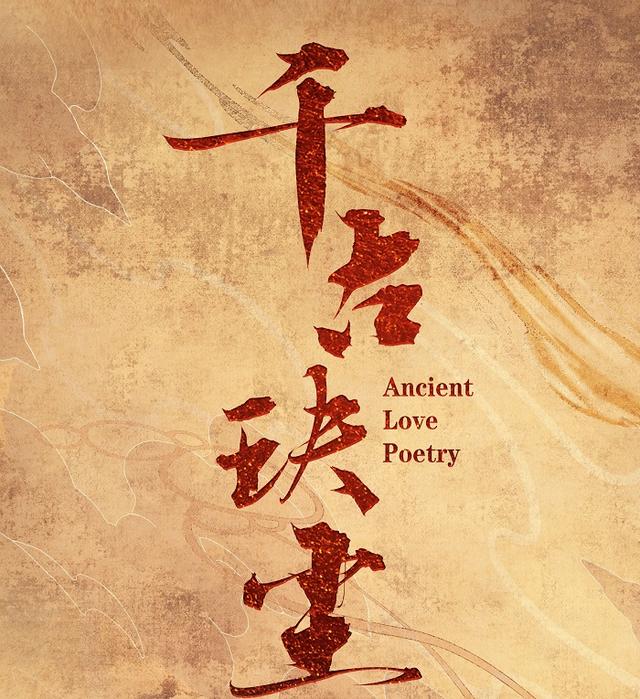 千古玦尘
Ancient
Love
Poetry